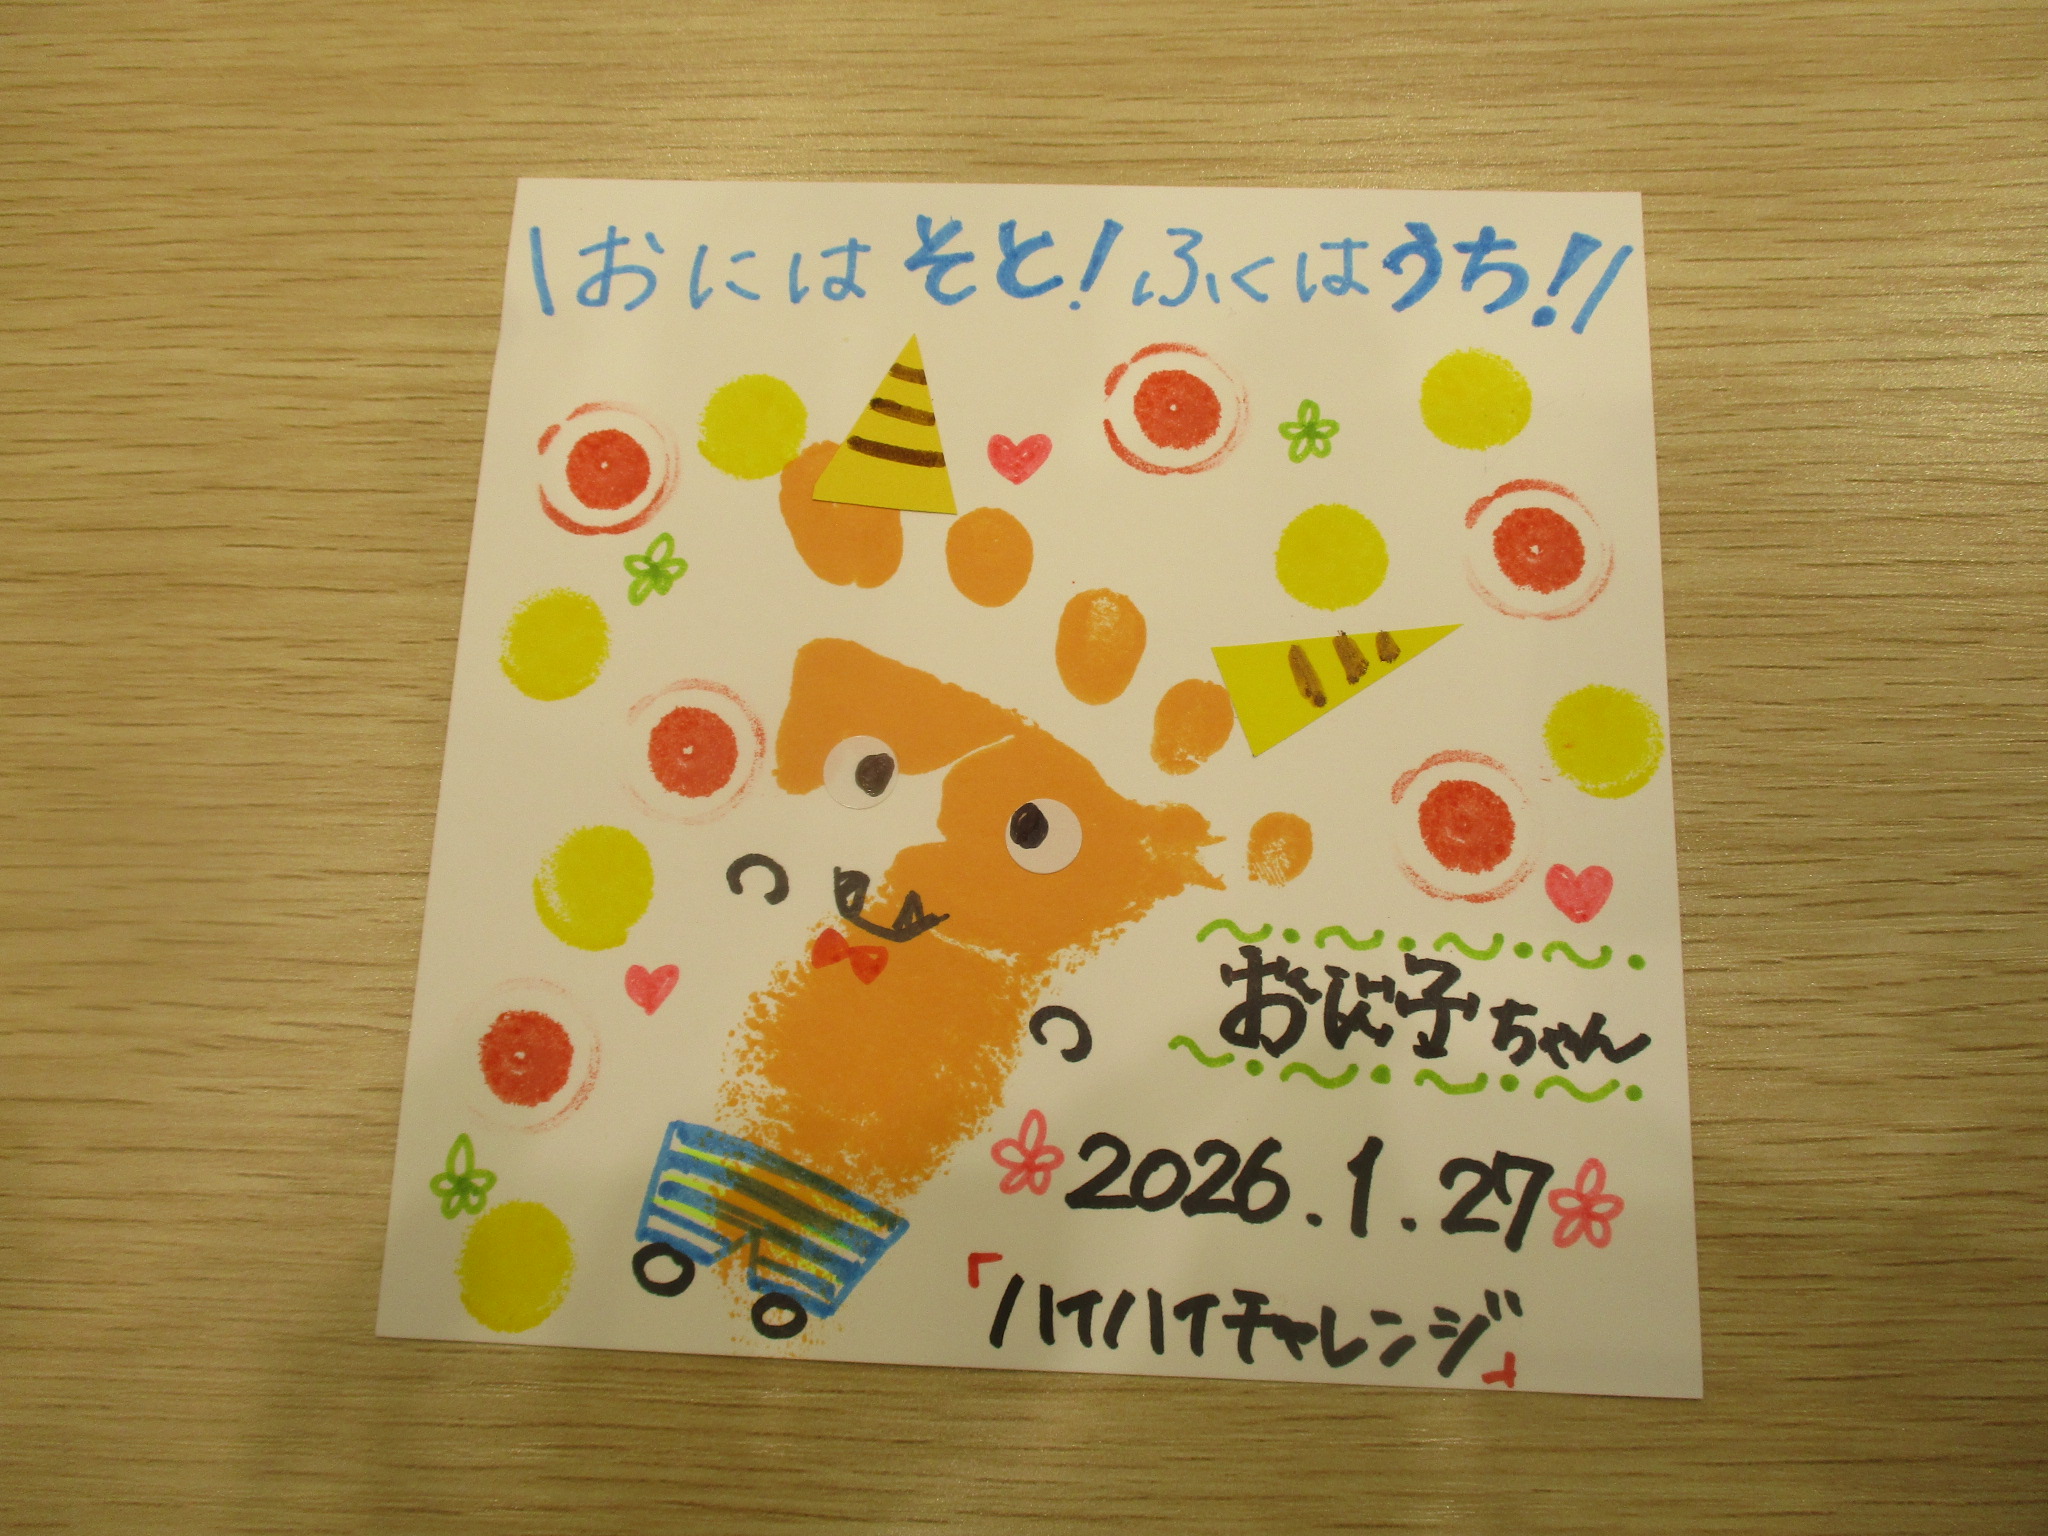 \おにはそと!ふくはうち!!/
おにっ子ちゃん
2026.1.27
「ハイハイチャレンジ」